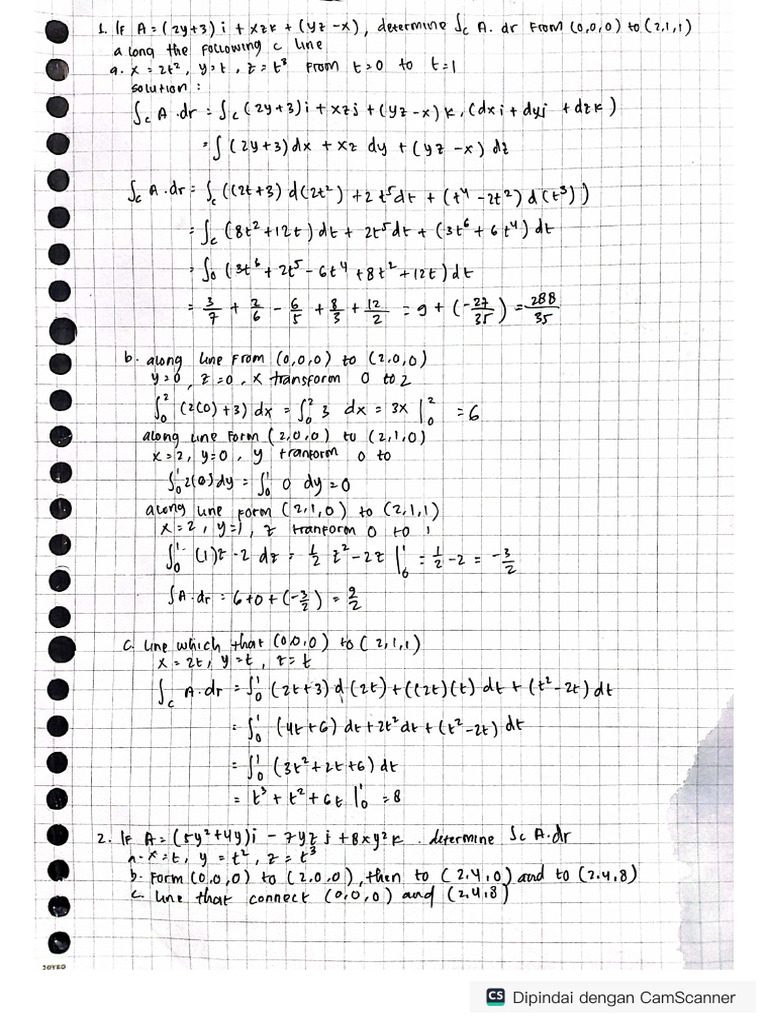 1. If A = (2y+3) i + xzk + (yz - x), determine ∫c A. dr From (0,0,0) to (2,1,1)
a long the following c line
a. x = 2t², y=t, z = t³ From t=0 to t=1
solution :
∫c A . dr = ∫c (2y+3)i + xzj + (yz - x) k, (dxi + dyj + dzk)
= ∫ (2y+3) dx + xz dy + (yz - x) dz
∫c A . dr = ∫c ((2t+3) d(2t²) + 2 t⁵dt + (t⁴ - 2t²) d(t³))
= ∫c (8t² + 12t) dt + 2t⁵dt + (3t⁶ + 6t⁴) dt
= ∫₀ (3t⁶ + 2t⁵ - 6t⁴ + 8t² + 12t) dt
= 3/7 + 2/6 - 6/5 + 8/3 + 12/2 = 9 + (-27/35) = 288/35
b. along line From (0,0,0) to (2,0,0)
y=0, z=0, x transform 0 to 2
∫₀² (2(0) + 3) dx = ∫₀² 3 dx = 3x |₀² = 6
along line Form (2,0,0) to (2,1,0)
x=2, y=0, y tranform 0 to
∫₀¹ 2(0) dy = ∫₀¹ 0 dy = 0
along line form (2,1,0) to (2,1,1)
x=2, y=1, z tranform 0 to 1
∫₀¹ (1)z - 2 dz = 1/2 z² - 2z |₀¹ = 1/2 - 2 = -3/2
∫A.dr = 6+0+(-3/2) = 9/2
c. Line which that (0,0,0) to (2,1,1)
x = 2t, y=t, z=t
∫c A.dr = ∫₀¹ (2t+3) d(2t) + ((2t)(t) dt + (t² - 2t) dt
= ∫₀¹ (4t+6) dt + 2t² dt + (t² - 2t) dt
= ∫₀¹ (3t² + 2t + 6) dt
= t³ + t² + 6t |₀¹ = 8
2. If A = (5y² + 4y)i - 7yzj + 8xy²k . determine ∫c A.dr
a. x=t, y = t², z = t³
b. Form (0,0,0) to (2,0,0), then to (2,4,0) and to (2,4,8)
c. Line that connect (0,0,0) and (2,4,8)
JOYKO
CS Dipindai dengan CamScanner